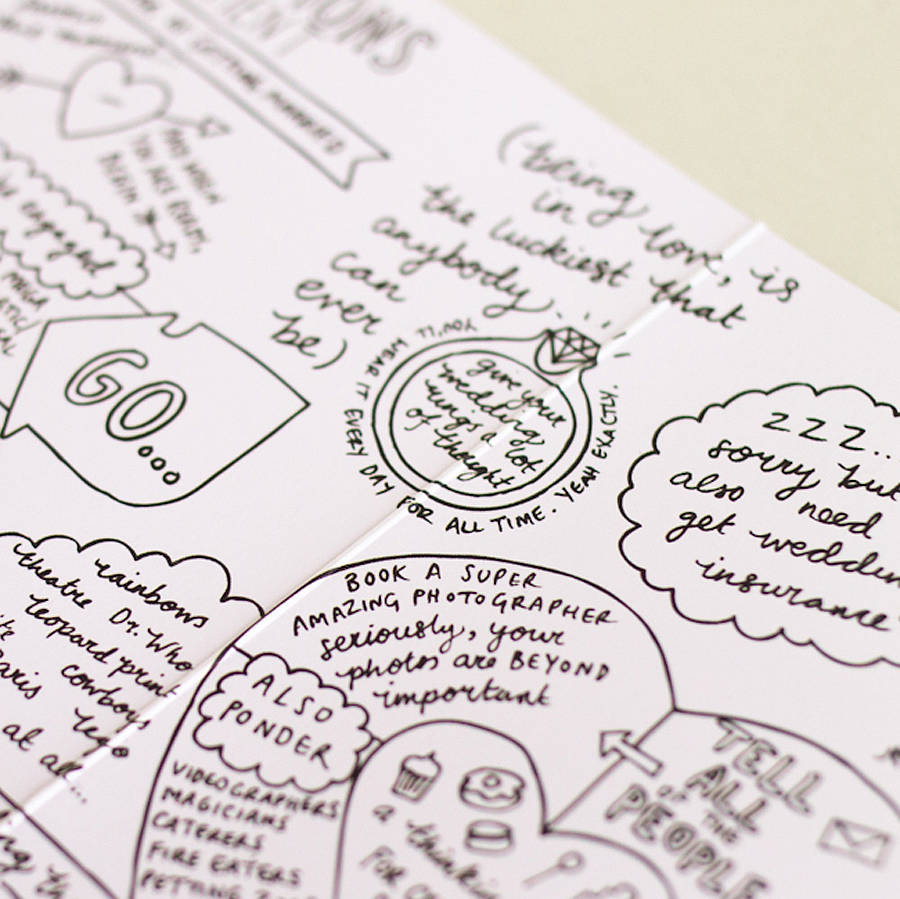 OF GETTING MARRIED
AND WHEN
YOU ARE READY,
BEGIN
engaged
GO...
(being 'in love' is
the luckiest that
anybody
can
ever
be)
give your
wedding
rings a lot
of thought
YOU'LL WEAR IT EVERY DAY FOR ALL TIME. YEAH EXACTLY.
ZZZ..
sorry but
also need
get wedding
insurance
rainbows
theatre Dr. Who
leopard print
cowboys
Paris lego
at all...
BOOK A SUPER
AMAZING PHOTOGRAPHER
seriously, your
photos are BEYOND
important
ALSO
PONDER
VIDEOGRAPHERS
MAGICIANS
CATERERS
FIRE EATERS
PETTING
a thinking
FOR
TELL
ALL
OF THE
PEOPLE